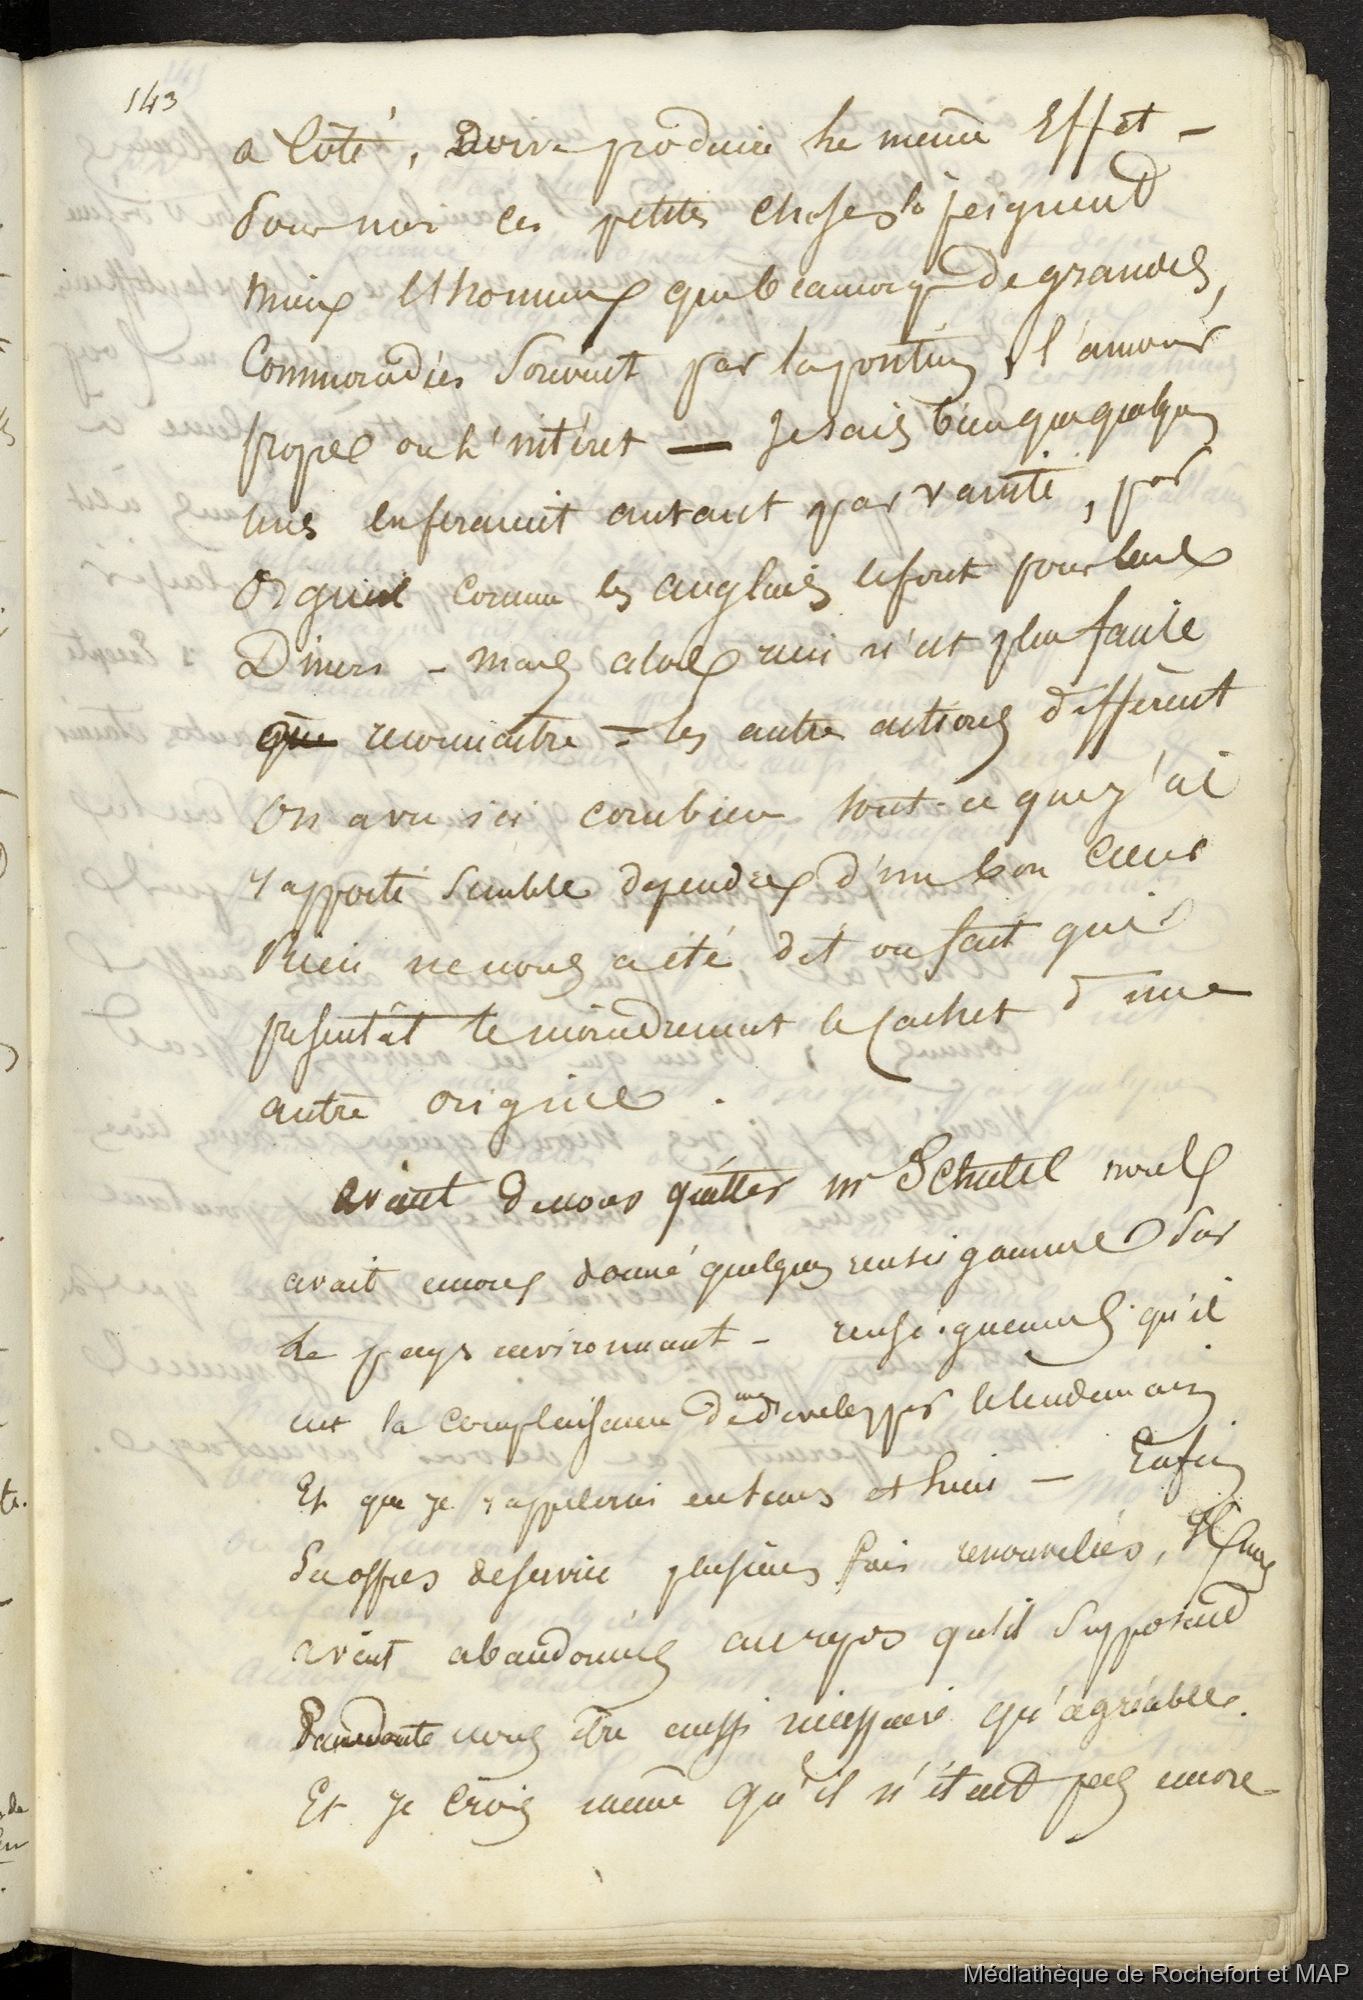 143
a côté, doive produire le même Effet -
Pour moi ces petites choses là peignent
mieux l'homme que beaucoup de grandes,
Commandées souvent par la position, l'amour
propre ou l'intéret — Je sais bien que quelques
uns en feraient autant par vanité, par
orgueil comme les anglais le font pour leurs
Diners - mais alors rien n'est plus facile
que reconnaitre = les autres actions different
on a vu ici combien tout ce que j'ai
rapporté semble dependre d'un bon cœur
Rien ne nous a été dit ou fait qui
présentât le moindrement le cachet d'une
autre origine.
avant de nous quitter mr Schutel nous
avait encore donné quelques renseignemens sur
le pays environnant - renseignemens qu'il
eut la complaisance de me developper le lendemain
Et que je rappelerai en tems et lieu — Enfin
Ses offres de service plusieurs fois renouvelées, Il nous
avait abandonnés au repos qu'il supposait
sans doute nous être aussi nécessaire qu'agréable.
Et je crois même qu'il n'était pas encore
Médiathèque de Rochefort et MAP